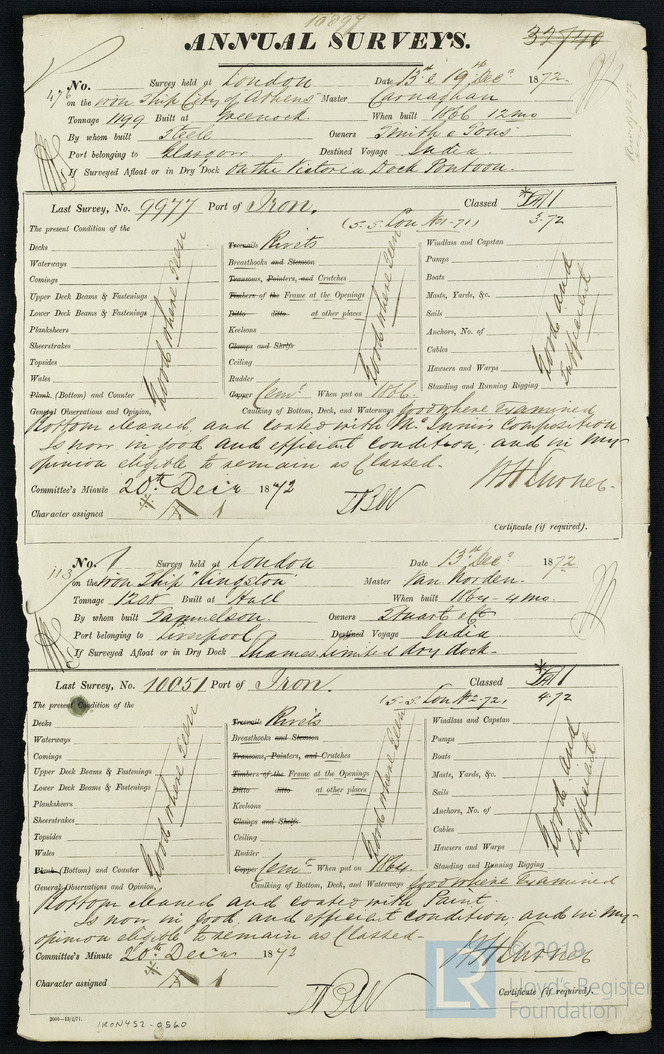 10899
ANNUAL SURVEYS.
37940
476 No. Survey held at London Date 13th & 19th Decr 1872
on the iron Ship "City of Athens" Master Carnaghan
Tonnage 1199 Built at Greenock When built 1866 12mo
By whom built Steele Owners Smith & Sons
Port belonging to Glasgow Destined Voyage India
If Surveyed Afloat or in Dry Dock On the Victoria Dock Pontoon.
Last Survey, No. 9977 Port of Iron. Classed
(S.S. Lon No 1-71) 3.72
The present Condition of the
Decks
Waterways
Comings
Upper Deck Beams & Fastenings
Lower Deck Beams & Fastenings
Planksheers
Sheerstrakes
Topsides
Wales
Plank (Bottom) and Counter
Good where seen
Treenails Rivets
Breasthooks and Stemson
Transoms, Pointers, and Crutches
Timbers of the Frame at the Openings
Ditto ditto at other places
Keelsons
Clamps and Shelfs
Ceiling
Rudder
Copper Cemt When put on 1866.
Good where seen
Windlass and Capstan
Pumps
Boats
Masts, Yards, &c.
Sails
Anchors, No. of
Cables
Hawsers and Warps
Standing and Running Rigging
Good and Sufficient
General Observations and Opinion, Caulking of Bottom, Deck, and Waterways good where Examined
Bottom cleaned, and coated with Mc Innis Composition
Is now in good and efficient condition; and in my
opinion eligible to remain as Classed.
Committee's Minute 20th Decr 1872
Character assigned
Certificate (if required).
113 No. Survey held at London Date 13th Decr 1872
on the Iron Ship "Kingston" Master Van Norden.
Tonnage 1288 Built at Hull When built 1864 - 4 mo
By whom built Samuelson. Owners Stuart & Co
Port belonging to Liverpool Destined Voyage India
If Surveyed Afloat or in Dry Dock Thames Limited dry dock.
Last Survey, No. 10051 Port of Iron. Classed
(S.S. Lon No 2-72) 4.72
The present Condition of the
Decks
Waterways
Comings
Upper Deck Beams & Fastenings
Lower Deck Beams & Fastenings
Planksheers
Sheerstrakes
Topsides
Wales
Plank (Bottom) and Counter
Good where seen
Treenails Rivets
Breasthooks and Stemson
Transoms, Pointers, and Crutches
Timbers of the Frame at the Openings
Ditto ditto at other places
Keelsons
Clamps and Shelfs
Ceiling
Rudder
Copper Cemt When put on 1864.
Good where seen
Windlass and Capstan
Pumps
Boats
Masts, Yards, &c.
Sails
Anchors, No. of
Cables
Hawsers and Warps
Standing and Running Rigging
Good and Sufficient
General Observations and Opinion, Caulking of Bottom, Deck, and Waterways good where Examined
Bottom cleaned and coated with Paint.
Is now in good and efficient condition; and in my
opinion eligible to remain as Classed.
Committee's Minute 20th Decr 1872
Character assigned
Certificate (if required).
2000—13/2/71.
IRON452-0560
© 2019
LR Lloyd's Register
Foundation